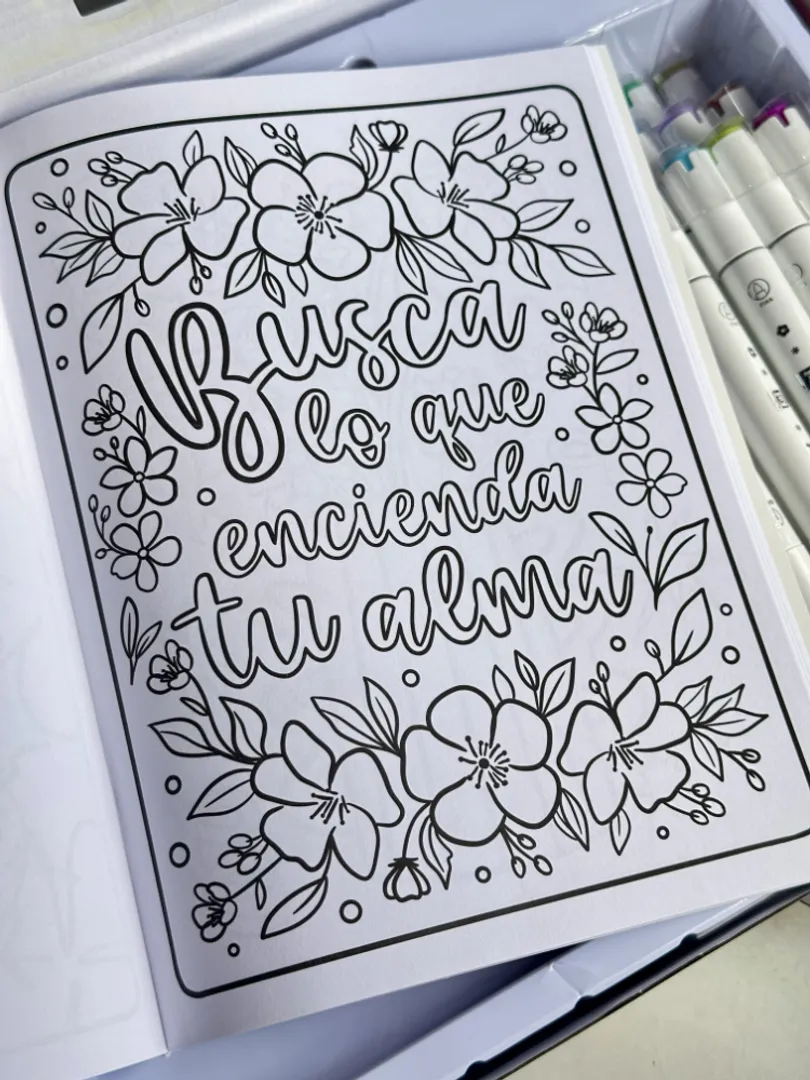 Busca
lo que
encienda
tu alma